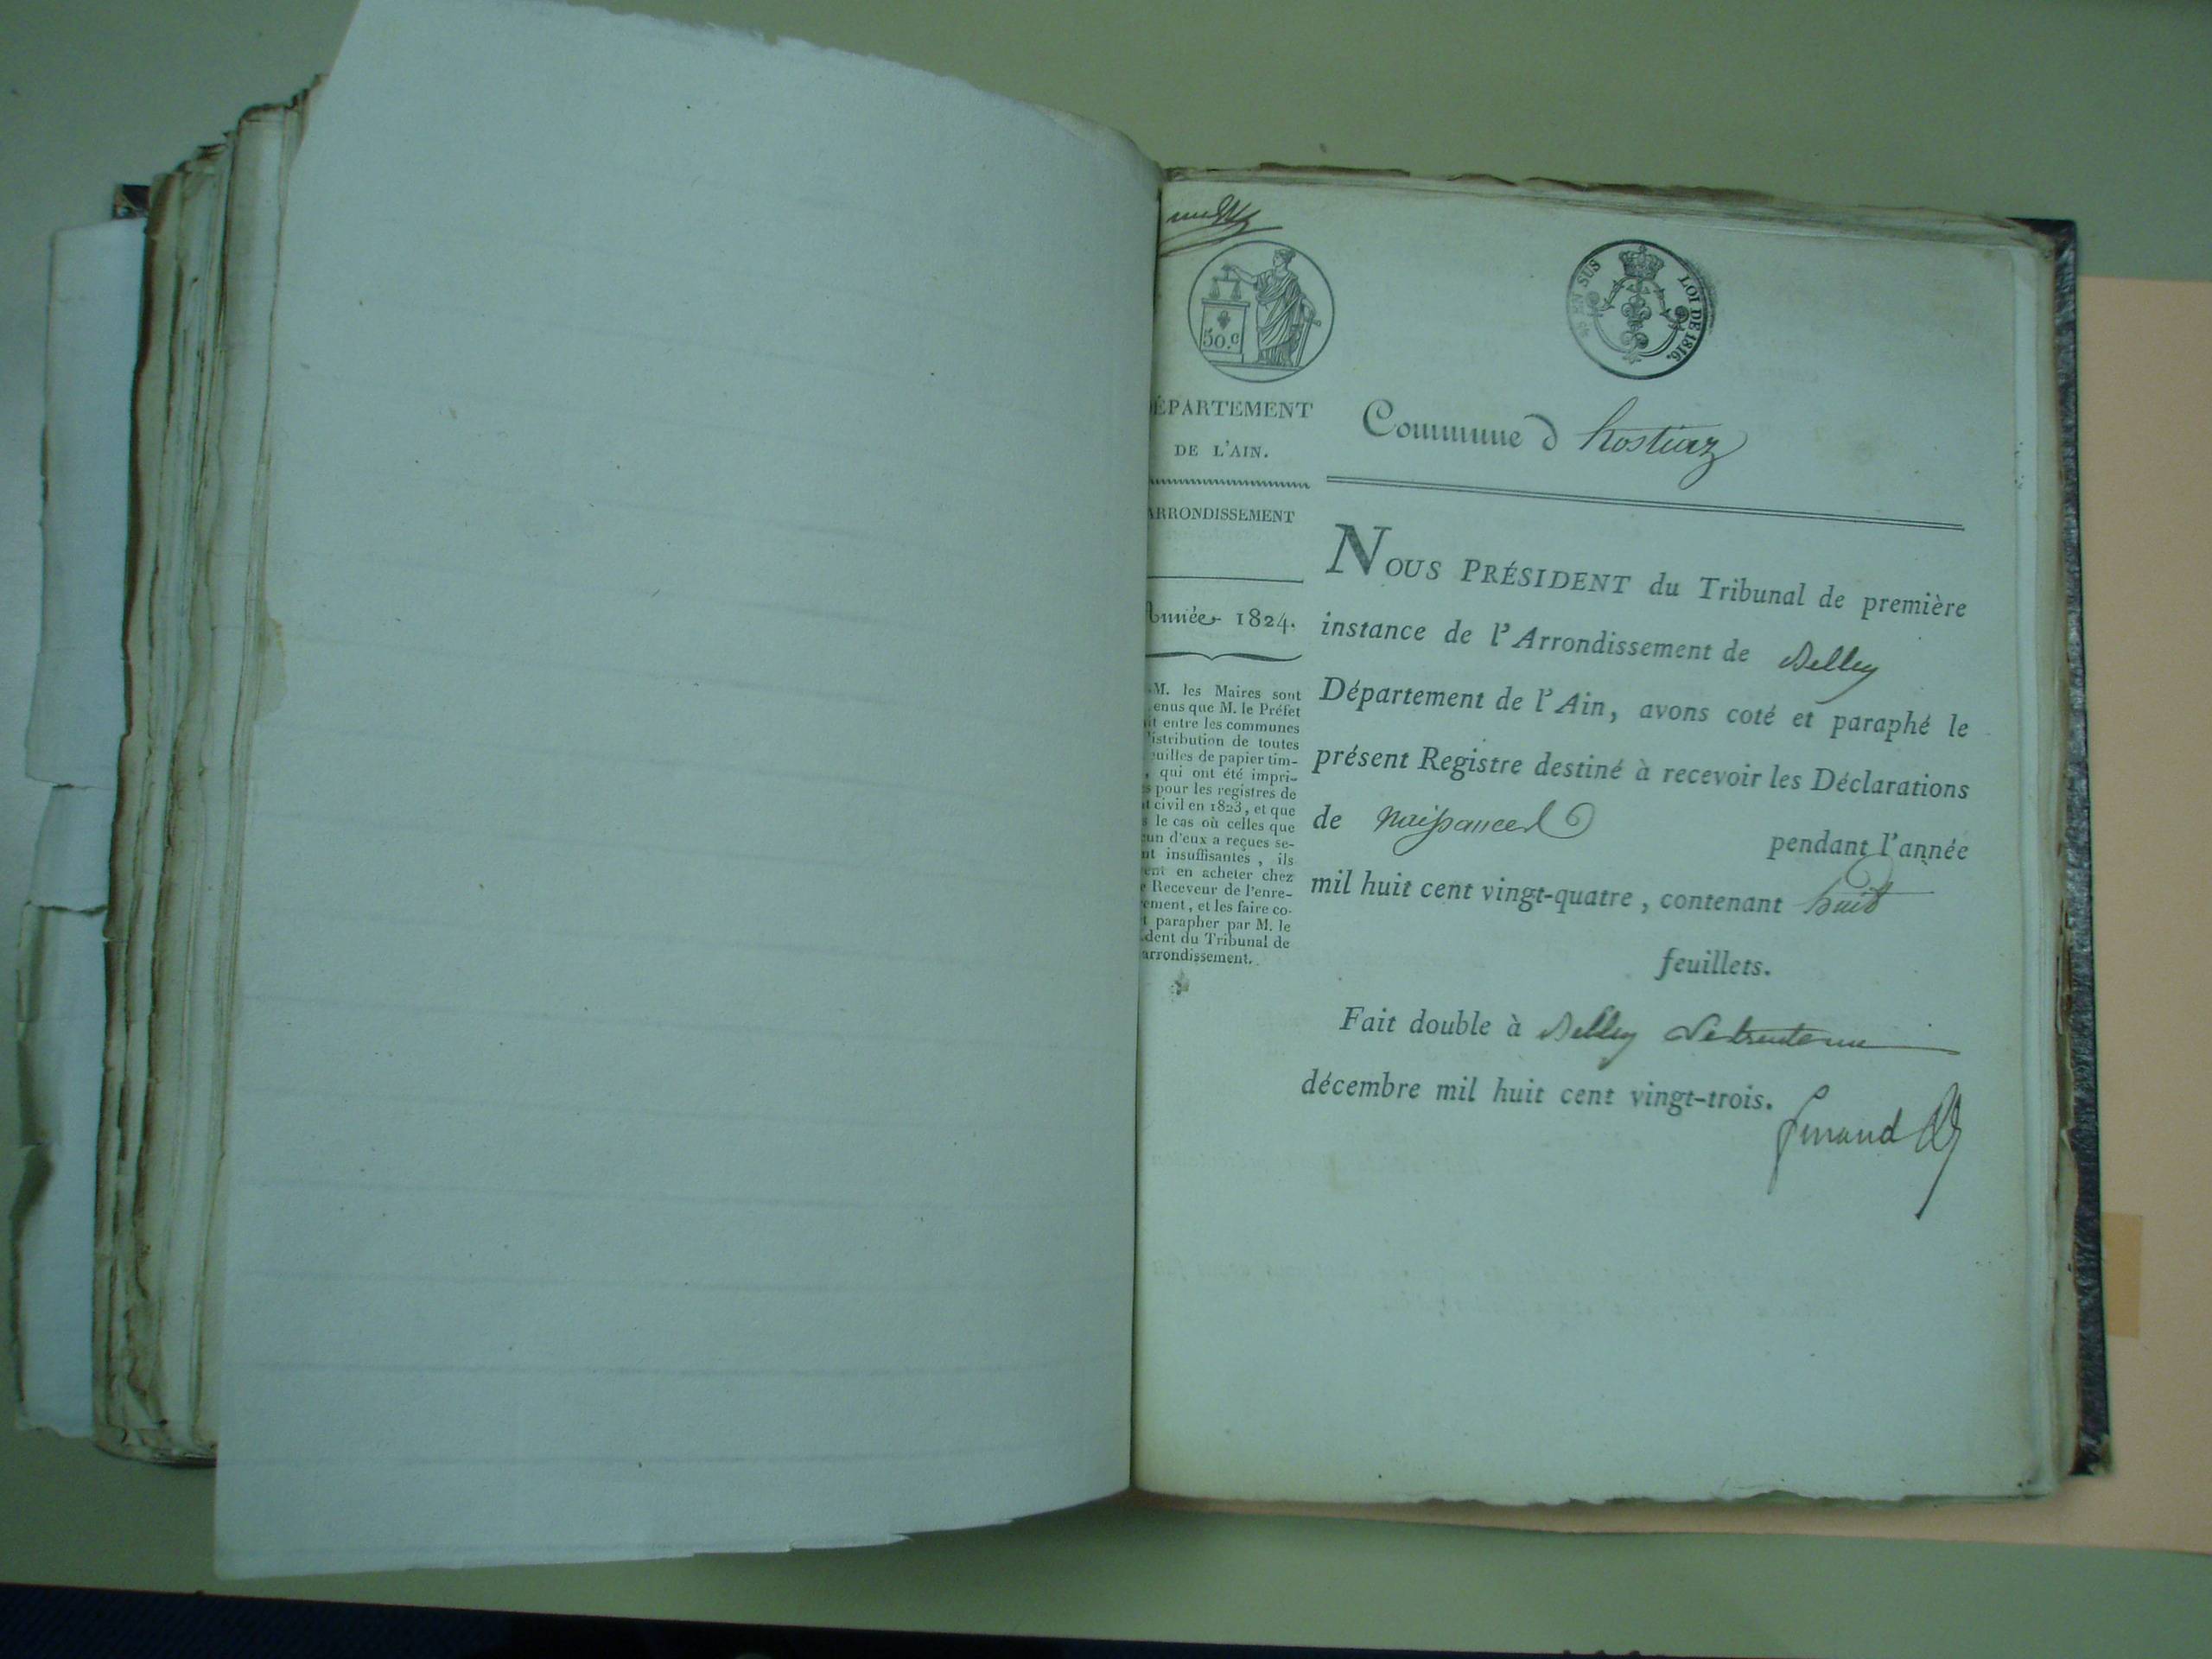 50.c
EN SUS LOI DE 1816.
ÉPARTEMENT
DE L'AIN.
ARRONDISSEMENT
Année 1824.
M. les Maires sont
enus que M. le Préfet
it entre les communes
istribution de toutes
uilles de papier tim-
, qui ont été impri-
s pour les registres de
t civil en 1823, et que
s le cas où celles que
un d'eux a reçues se-
nt insuffisantes, ils
ent en acheter chez
e Receveur de l'enre-
ement, et les faire co-
t parapher par M. le
dent du Tribunal de
arrondissement.
Commune d hostiaz
NOUS PRÉSIDENT du Tribunal de première
instance de l'Arrondissement de Belley
Département de l'Ain, avons coté et paraphé le
présent Registre destiné à recevoir les Déclarations
de Naissances
pendant l'année
mil huit cent vingt-quatre, contenant huit
feuillets.
Fait double à Belley le trente un
décembre mil huit cent vingt-trois.